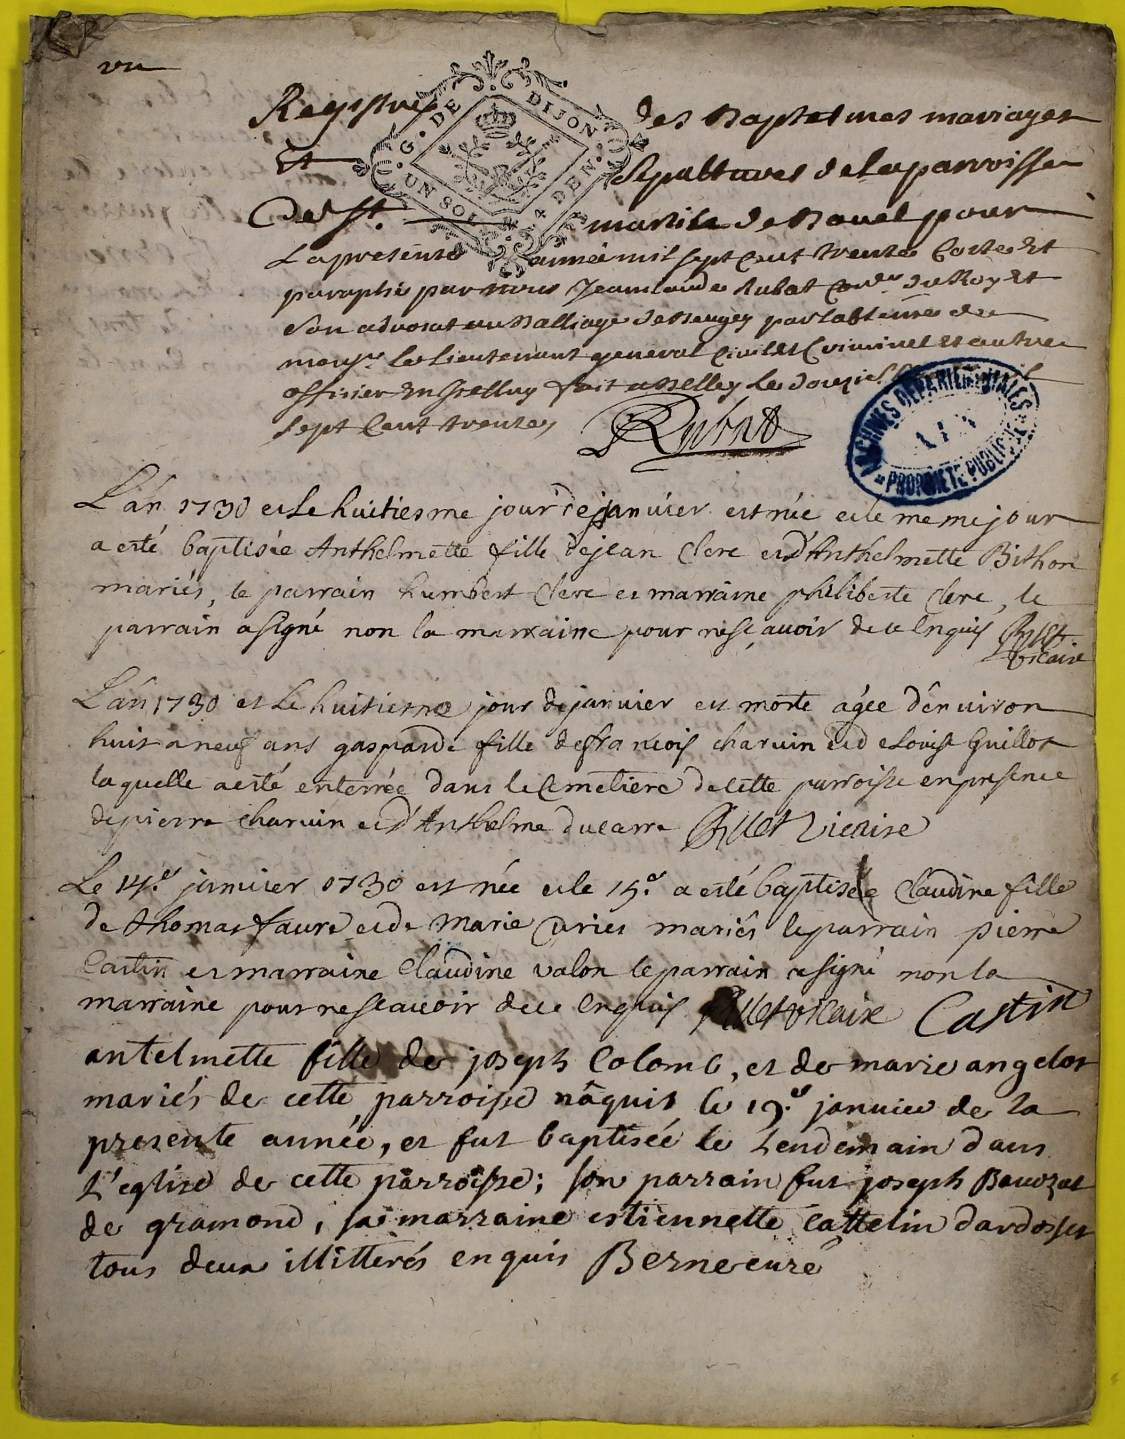 vu
Registres des Baptesmes mariages
Et Sepultures de la parroisse
De St. martin de Bauel pour
La presente année mil sept Cent trente Cottes Et
paraphé par nous Jean claude Rubat Coner. du Roy Et
son advocat au Balliage de Beugey par labsence de
monsr. le Lieutenant general Civil Et Criminel Et autre
officier En Icelluy fait a Belley le
sept Cent trente
Rubat
G. DE DIJON
UN SOL 4 DEN.
ARCHIVES DEPARTEMENTALES
AIN
PROPRIETE PUBLIQUE
L'an 1730 et Le huitiesme jour de janvier est née et le meme jour
a esté baptisée Anthelmette fille de jean Clerc et d'Anthelmette Bithon
mariés, le parrain humbert Clerc et marraine philiberte Clerc, le
parrain a signé non la marraine pour ne sçavoir de ce Enquis
vicaire
L'an 1730 et Le huitiesme jour de janvier est morte agée d'environ
huit a neuf ans gasparde fille de francois charvin et de Louise Guillot
laquelle a esté enterrée dans le Cemetiere de cette parroisse en presence
de pierre charvin et d'Anthelme ducarre vicaire
Le 14.e janvier 1730 est née et le 15.e a esté baptisée Claudine fille
de thomas faure et de Marie mariés le parrain pierre
Castin et marraine Claudine valon le parrain a signé non la
marraine pour ne scavoir de ce Enquis vicaire Castin
antelmette fille de joseph Colomb, et de marie angelot
mariés de cette parroisse nâquit le 19.e janvier de la
presente année, et fut baptisée le Lendemain dans
L'eglise de cette parroisse; son parrain fut joseph
de gramond, sa marraine estiennette Cattelin dardosset
tous deux illitterés enquis Berne curé